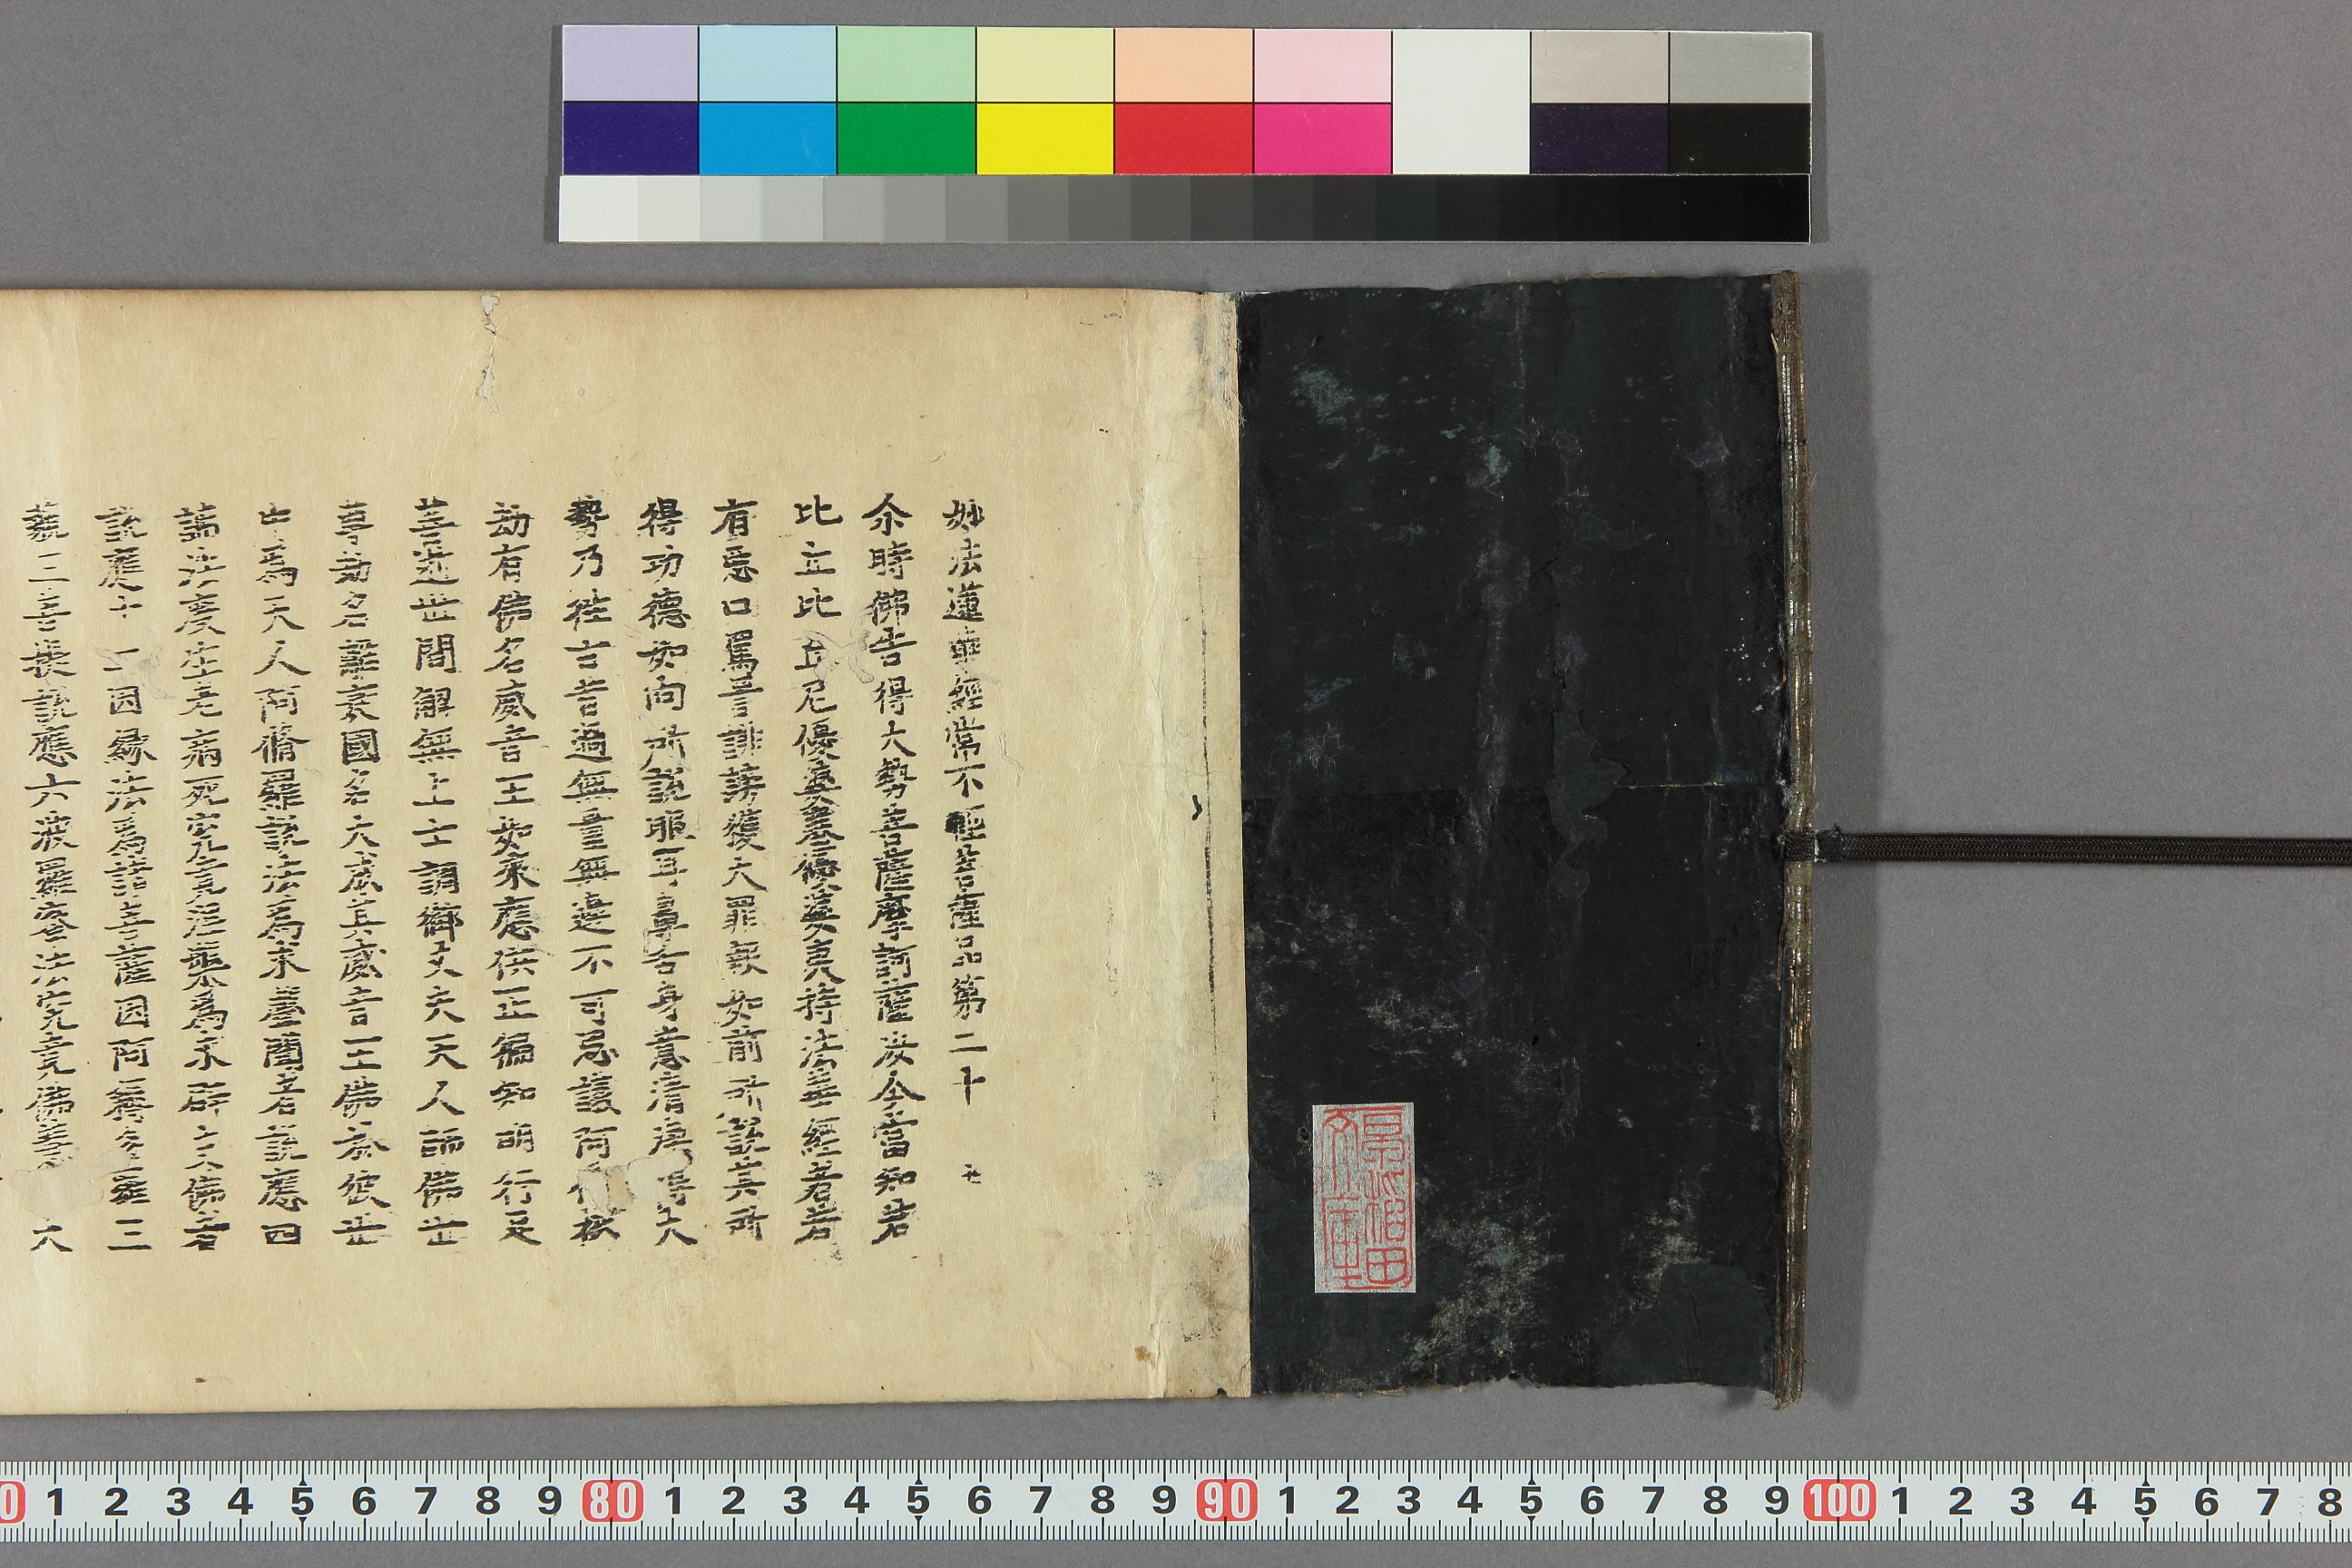 妙法蓮華經常不輕菩薩品第二十 七
尒時佛告得大勢菩薩摩訶薩汝今當知若
比丘比丘尼優婆塞優婆夷持法華經者若
有惡口罵詈誹謗獲大罪報如前所說其所
得功德如向所說眼耳鼻舌身意清淨得大
勢乃往古昔過無量無邊不可思議阿僧祇
劫有佛名威音王如來應供正徧知明行足
善逝世間解無上士調御丈夫天人師佛世
尊劫名離衰國名大成其威音王佛於彼世
中爲天人阿脩羅說法爲求聲聞者說應四
諦法度生老病死究竟涅槃爲求辟支佛者
說應十二因緣法爲諸菩薩因阿耨多羅三
藐三菩提說應六波羅蜜法究竟佛慧 大
0 1 2 3 4 5 6 7 8 9 80 1 2 3 4 5 6 7 8 9 90 1 2 3 4 5 6 7 8 9 100 1 2 3 4 5 6 7 8